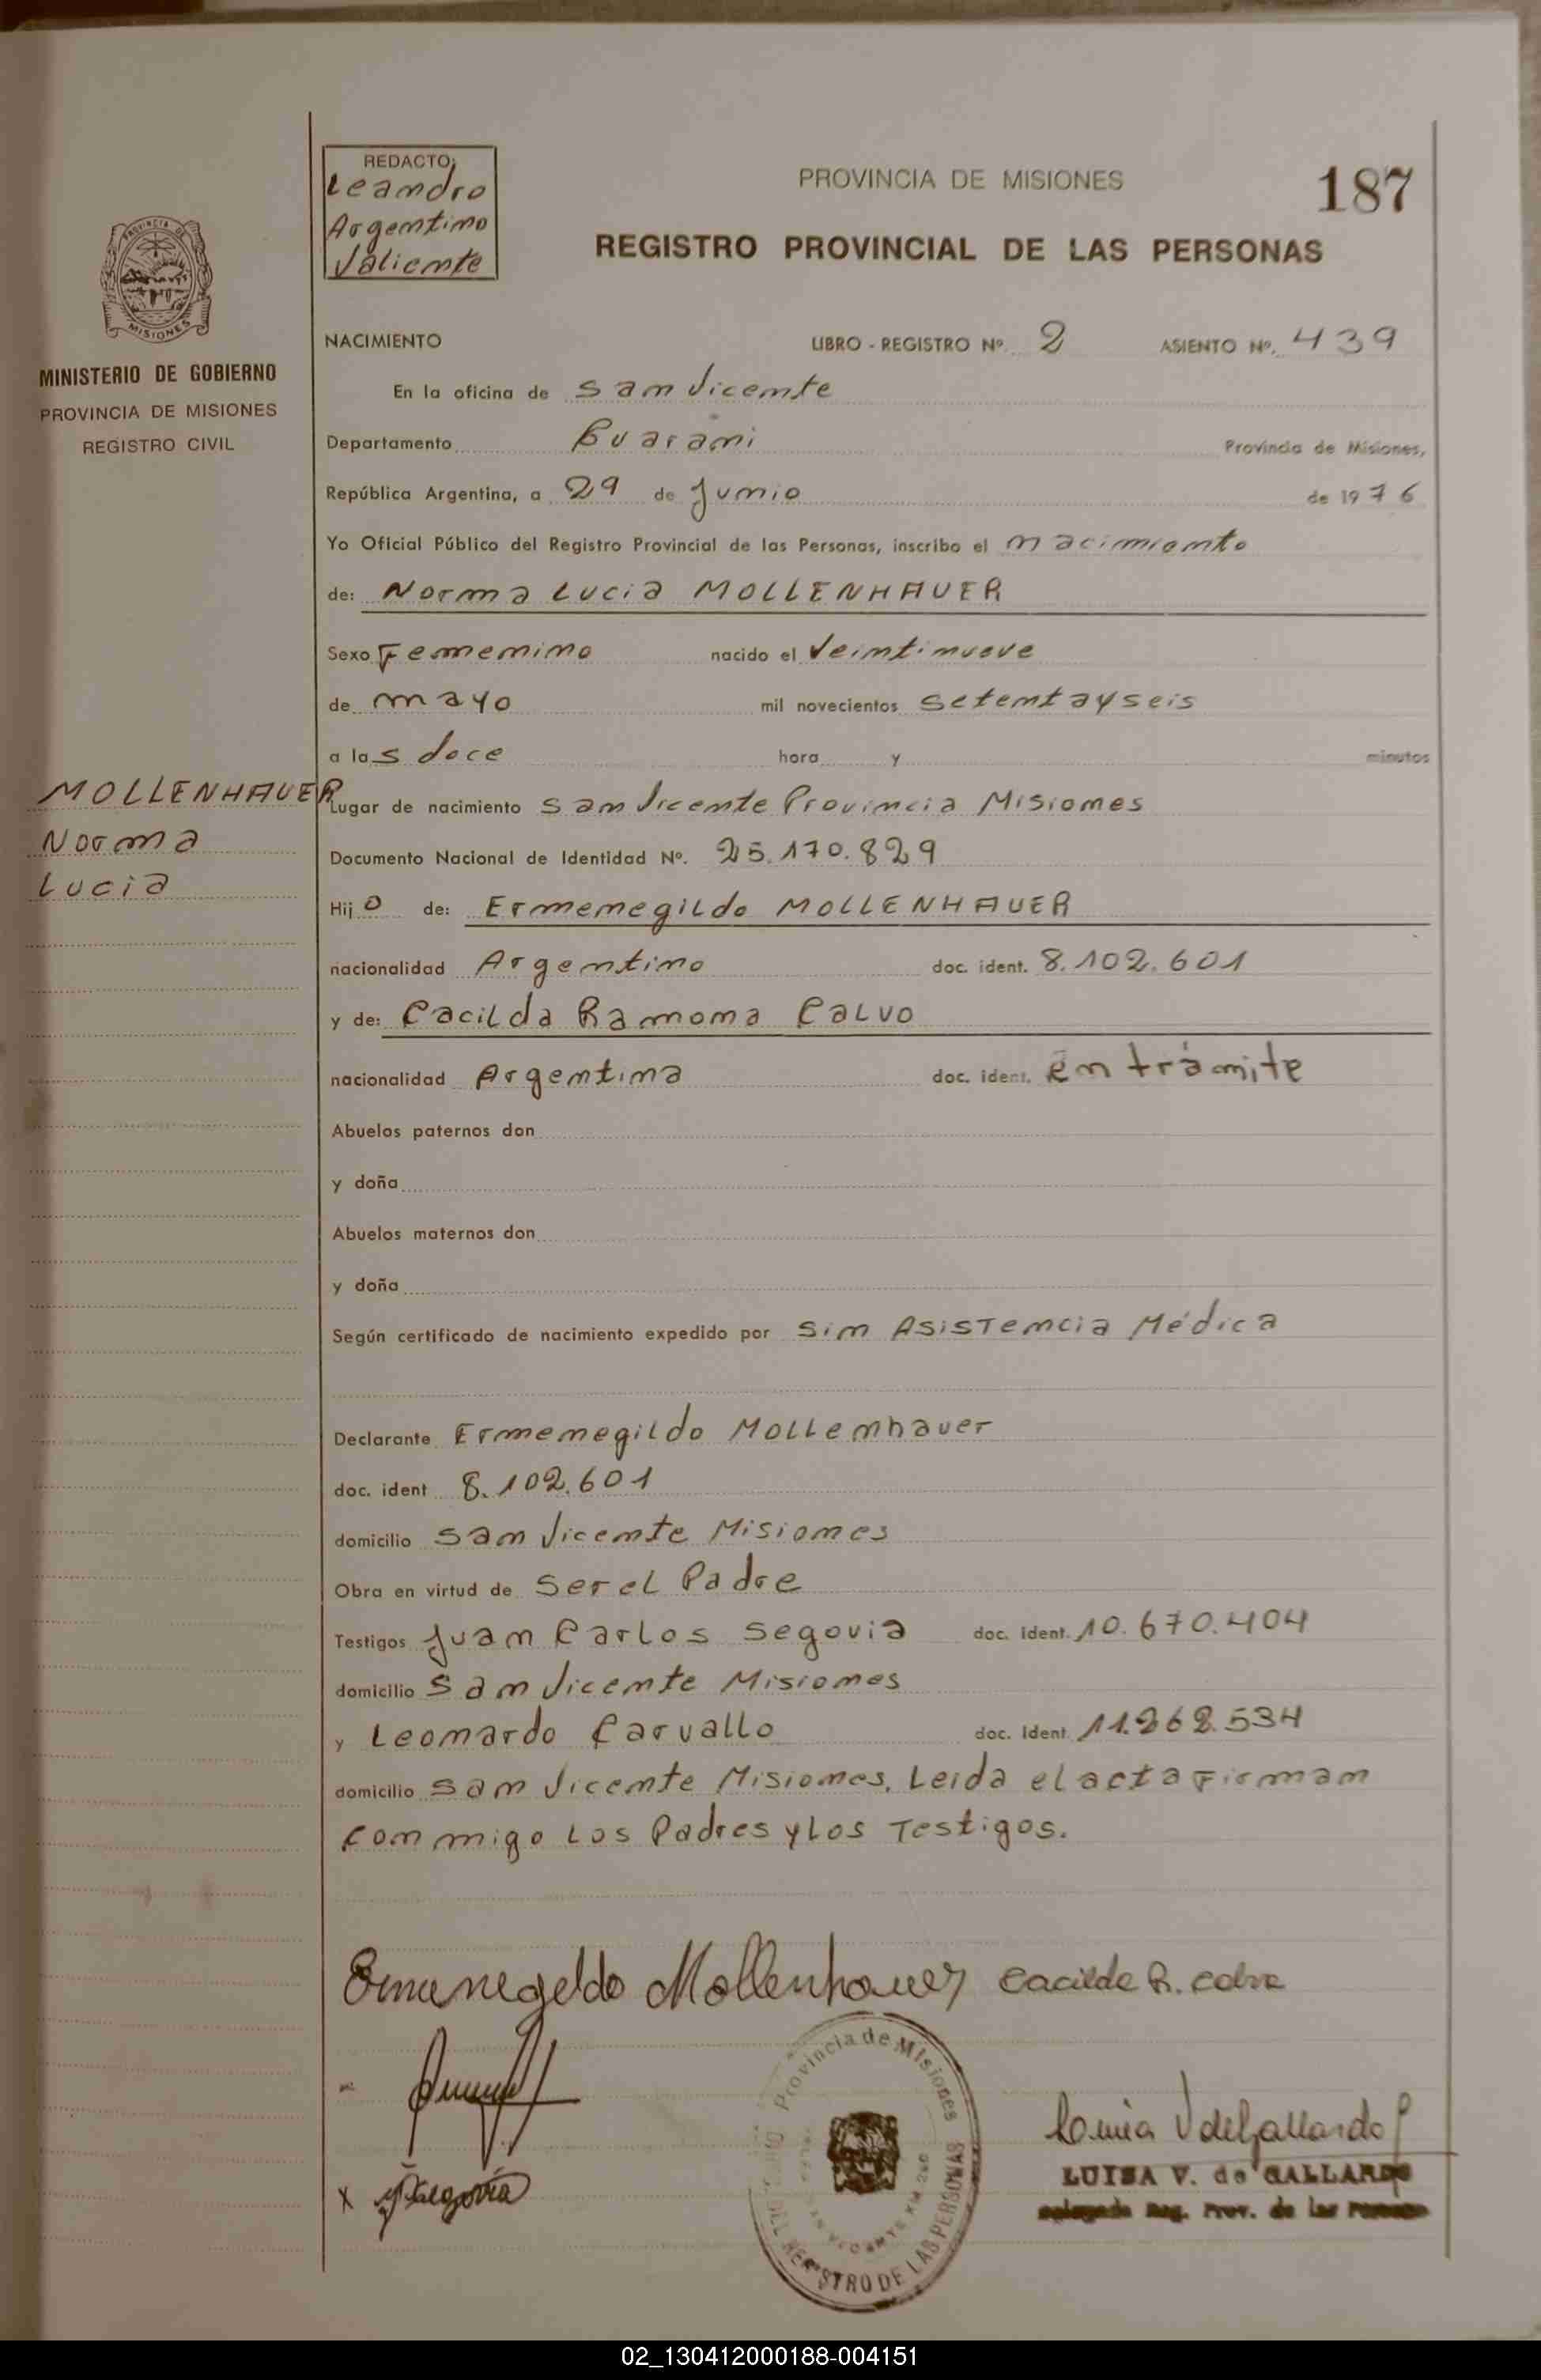 REDACTO:
Leandro
Argentino
Valiente
PROVINCIA DE MISIONES
187
REGISTRO PROVINCIAL DE LAS PERSONAS
PROVINCIA DE
MISIONES
MINISTERIO DE GOBIERNO
PROVINCIA DE MISIONES
REGISTRO CIVIL
NACIMIENTO LIBRO - REGISTRO Nº. 2 ASIENTO Nº. 439
En la oficina de San Vicente
Departamento Guarani Provincia de Misiones,
República Argentina, a 29 de Junio de 1976
Yo Oficial Público del Registro Provincial de las Personas, inscribo el nacimiento
de: Norma Lucia MOLLENHAUER
Sexo Femenino nacido el Veintinueve
de mayo mil novecientos setentayseis
a las doce hora y minutos
MOLLENHAUER
Norma
Lucia
Lugar de nacimiento San Vicente Provincia Misiones
Documento Nacional de Identidad Nº. 25.170.829
Hijo de: Ermenegildo MOLLENHAUER
nacionalidad Argentino doc. ident. 8.102.601
y de: Cacilda Ramona Calvo
nacionalidad Argentina doc. ident. en trámite
Abuelos paternos don
y doña
Abuelos maternos don
y doña
Según certificado de nacimiento expedido por Sin Asistencia Médica
Declarante Ermenegildo Mollenhauer
doc. ident 8.102.601
domicilio San Vicente Misiones
Obra en virtud de Ser el Padre
Testigos Juan Carlos Segovia doc. ident. 10.670.404
domicilio San Vicente Misiones
y Leonardo Carvallo doc. ident. 11.262.534
domicilio San Vicente Misiones. Leida el acta Firman
conmigo Los Padres y Los Testigos.
Ermenegeldo Mollenhauer Cacilda R. Calva
X Segovia
Provincia de Misiones
DEL REGISTRO DE LAS PERSONAS
Luisa V de Gallardo
LUISA V. de GALLARDO
Delegada Reg. Prov. de las Personas
02_130412000188-004151